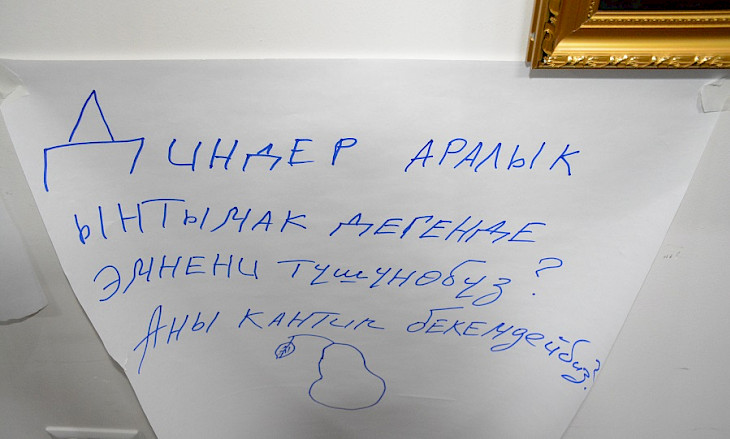 Диндер аралык
ынтымак дегенде
эмнени түшүнөбүз?
Аны кантип бекемдейбиз?